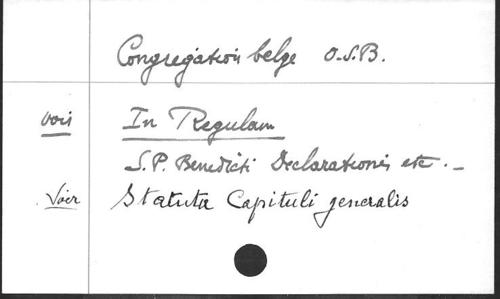 Congregation belge O.S.B.
voir In Regulam
S.P. Benedicti Declarationes etc.
Voir Statuta Capituli generalis